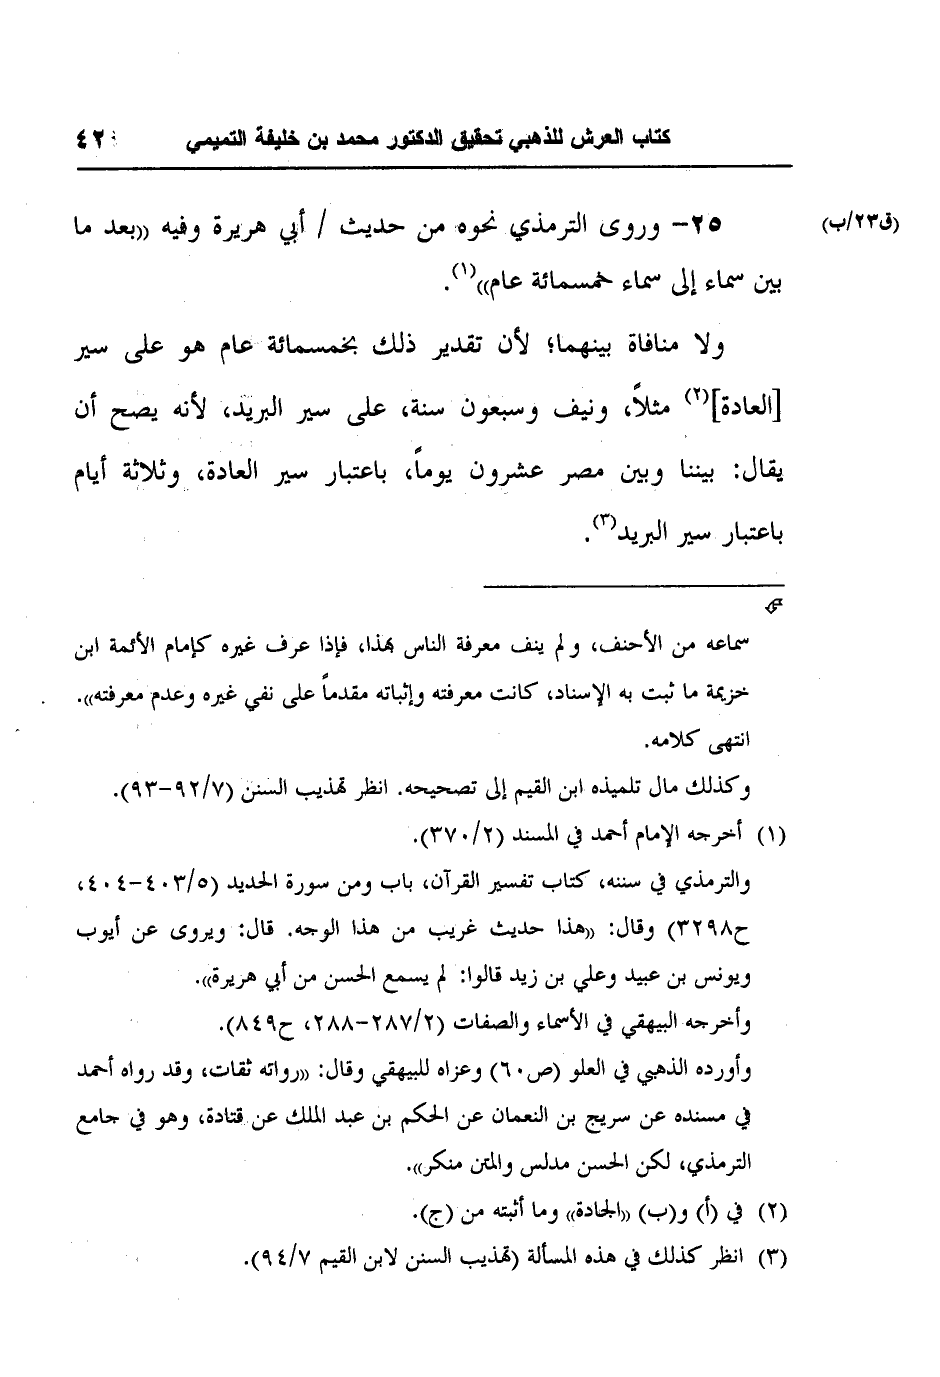 كتاب العرش للذهبي تحقيق الدكتور محمد بن خليفة التميمي ٤٢
(ق٢٣/ب) ٢٥- وروى الترمذي نحوه من حديث / أبي هريرة وفيه ((بعد ما
بين سماء إلى سماء خمسمائة عام))(١).
ولا منافاة بينهما؛ لأن تقدير ذلك بخمسمائة عام هو على سير
[العادة](٢) مثلاً، ونيف وسبعون سنة، على سير البريد، لأنه يصح أن
يقال: بيننا وبين مصر عشرون يوماً، باعتبار سير العادة، وثلاثة أيام
باعتبار سير البريد(٣).
سماعه من الأحنف، ولم ينف معرفة الناس بهذا، فإذا عرف غيره كإمام الأئمة ابن
خزيمة ما ثبت به الإسناد، كانت معرفته وإثباته مقدماً على نفي غيره وعدم معرفته)).
انتهى كلامه.
وكذلك مال تلميذه ابن القيم إلى تصحيحه. انظر تهذيب السنن (٩٢/٧-٩٣).
(١) أخرجه الإمام أحمد في المسند (٣٧٠/٢).
والترمذي في سننه، كتاب تفسير القرآن، باب ومن سورة الحديد (٤٠٣/٥-٤٠٤،
ح٣٢٩٨) وقال: ((هذا حديث غريب من هذا الوجه. قال: ويروى عن أيوب
ويونس بن عبيد وعلي بن زيد قالوا: لم يسمع الحسن من أبي هريرة)).
وأخرجه البيهقي في الأسماء والصفات (٢٨٧/٢-٢٨٨، ح٨٤٩).
وأورده الذهبي في العلو (ص٦٠) وعزاه للبيهقي وقال: ((رواته ثقات، وقد رواه أحمد
في مسنده عن سريج بن النعمان عن الحكم بن عبد الملك عن قتادة، وهو في جامع
الترمذي، لكن الحسن مدلس والمتن منكر)).
(٢) في (أ) و(ب) ((الجادة)) وما أثبته من (ج).
(٣) انظر كذلك في هذه المسألة (تهذيب السنن لابن القيم ٩٤/٧).